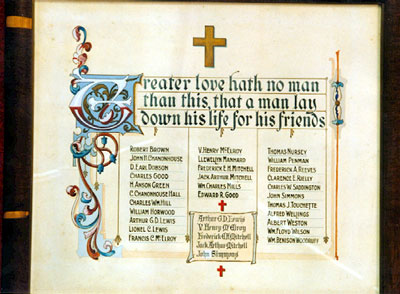 Greater love hath no man
than this, that a man lay
down his life for his friends
Robert Brown
John H. Chanonhouse
D. Earl Dobson
Charles Good
H. Anson Green
C. Chanonhouse Hall
Charles Wm. Hill
William Horwood
Arthur G. D. Lewis
Lionel C. Lewis
Francis C. McElroy
V. Henry McElroy
Llewelyn Manhard
Frederick E. H. Mitchell
Jack Arthur Mitchell
Wm. Charles Mills
Edward R. Good
Thomas Nursey
William Penman
Frederick A Reeves
Clarence E. Rielly
Charles W. Saddington
John Simmons
Thomas J. Touchette
Alfred Wellings
Albert Weston
Wm. Floyd Wilson
Wm. Benison Woodburn
Arthur G. D. Lewis
V. Henry McElroy
Frederick E. H. Mitchell
Jack Arthur Mitchell
John Simmons